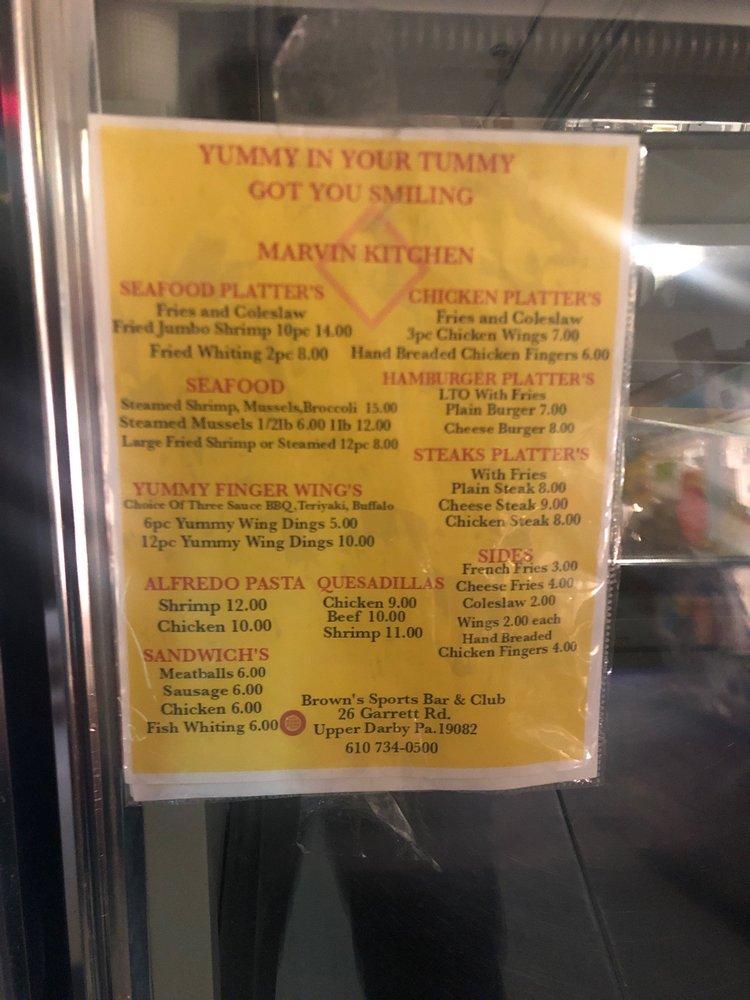 YUMMY IN YOUR TUMMY
GOT YOU SMILING
MARVIN KITCHEN
SEAFOOD PLATTER'S
Fries and Coleslaw
Fried Jumbo Shrimp 10pc 14.00
Fried Whiting 2pc 8.00
SEAFOOD
Steamed Shrimp, Mussels,Broccoli 15.00
Steamed Mussels 1/2lb 6.00 1lb 12.00
Large Fried Shrimp or Steamed 12pc 8.00
YUMMY FINGER WING'S
Choice Of Three Sauce BBQ ,Teriyaki, Buffalo
6pc Yummy Wing Dings 5.00
12pc Yummy Wing Dings 10.00
ALFREDO PASTA
Shrimp 12.00
Chicken 10.00
SANDWICH'S
Meatballs 6.00
Sausage 6.00
Chicken 6.00
Fish Whiting 6.00
CHICKEN PLATTER'S
Fries and Coleslaw
3pc Chicken Wings 7.00
Hand Breaded Chicken Fingers 6.00
HAMBURGER PLATTER'S
LTO With Fries
Plain Burger 7.00
Cheese Burger 8.00
STEAKS PLATTER'S
With Fries
Plain Steak 8.00
Cheese Steak 9.00
Chicken Steak 8.00
QUESADILLAS
Chicken 9.00
Beef 10.00
Shrimp 11.00
SIDES
French Fries 3.00
Cheese Fries 4.00
Coleslaw 2.00
Wings 2.00 each
Hand Breaded
Chicken Fingers 4.00
Brown's Sports Bar & Club
26 Garrett Rd.
Upper Darby Pa.19082
610 734-0500